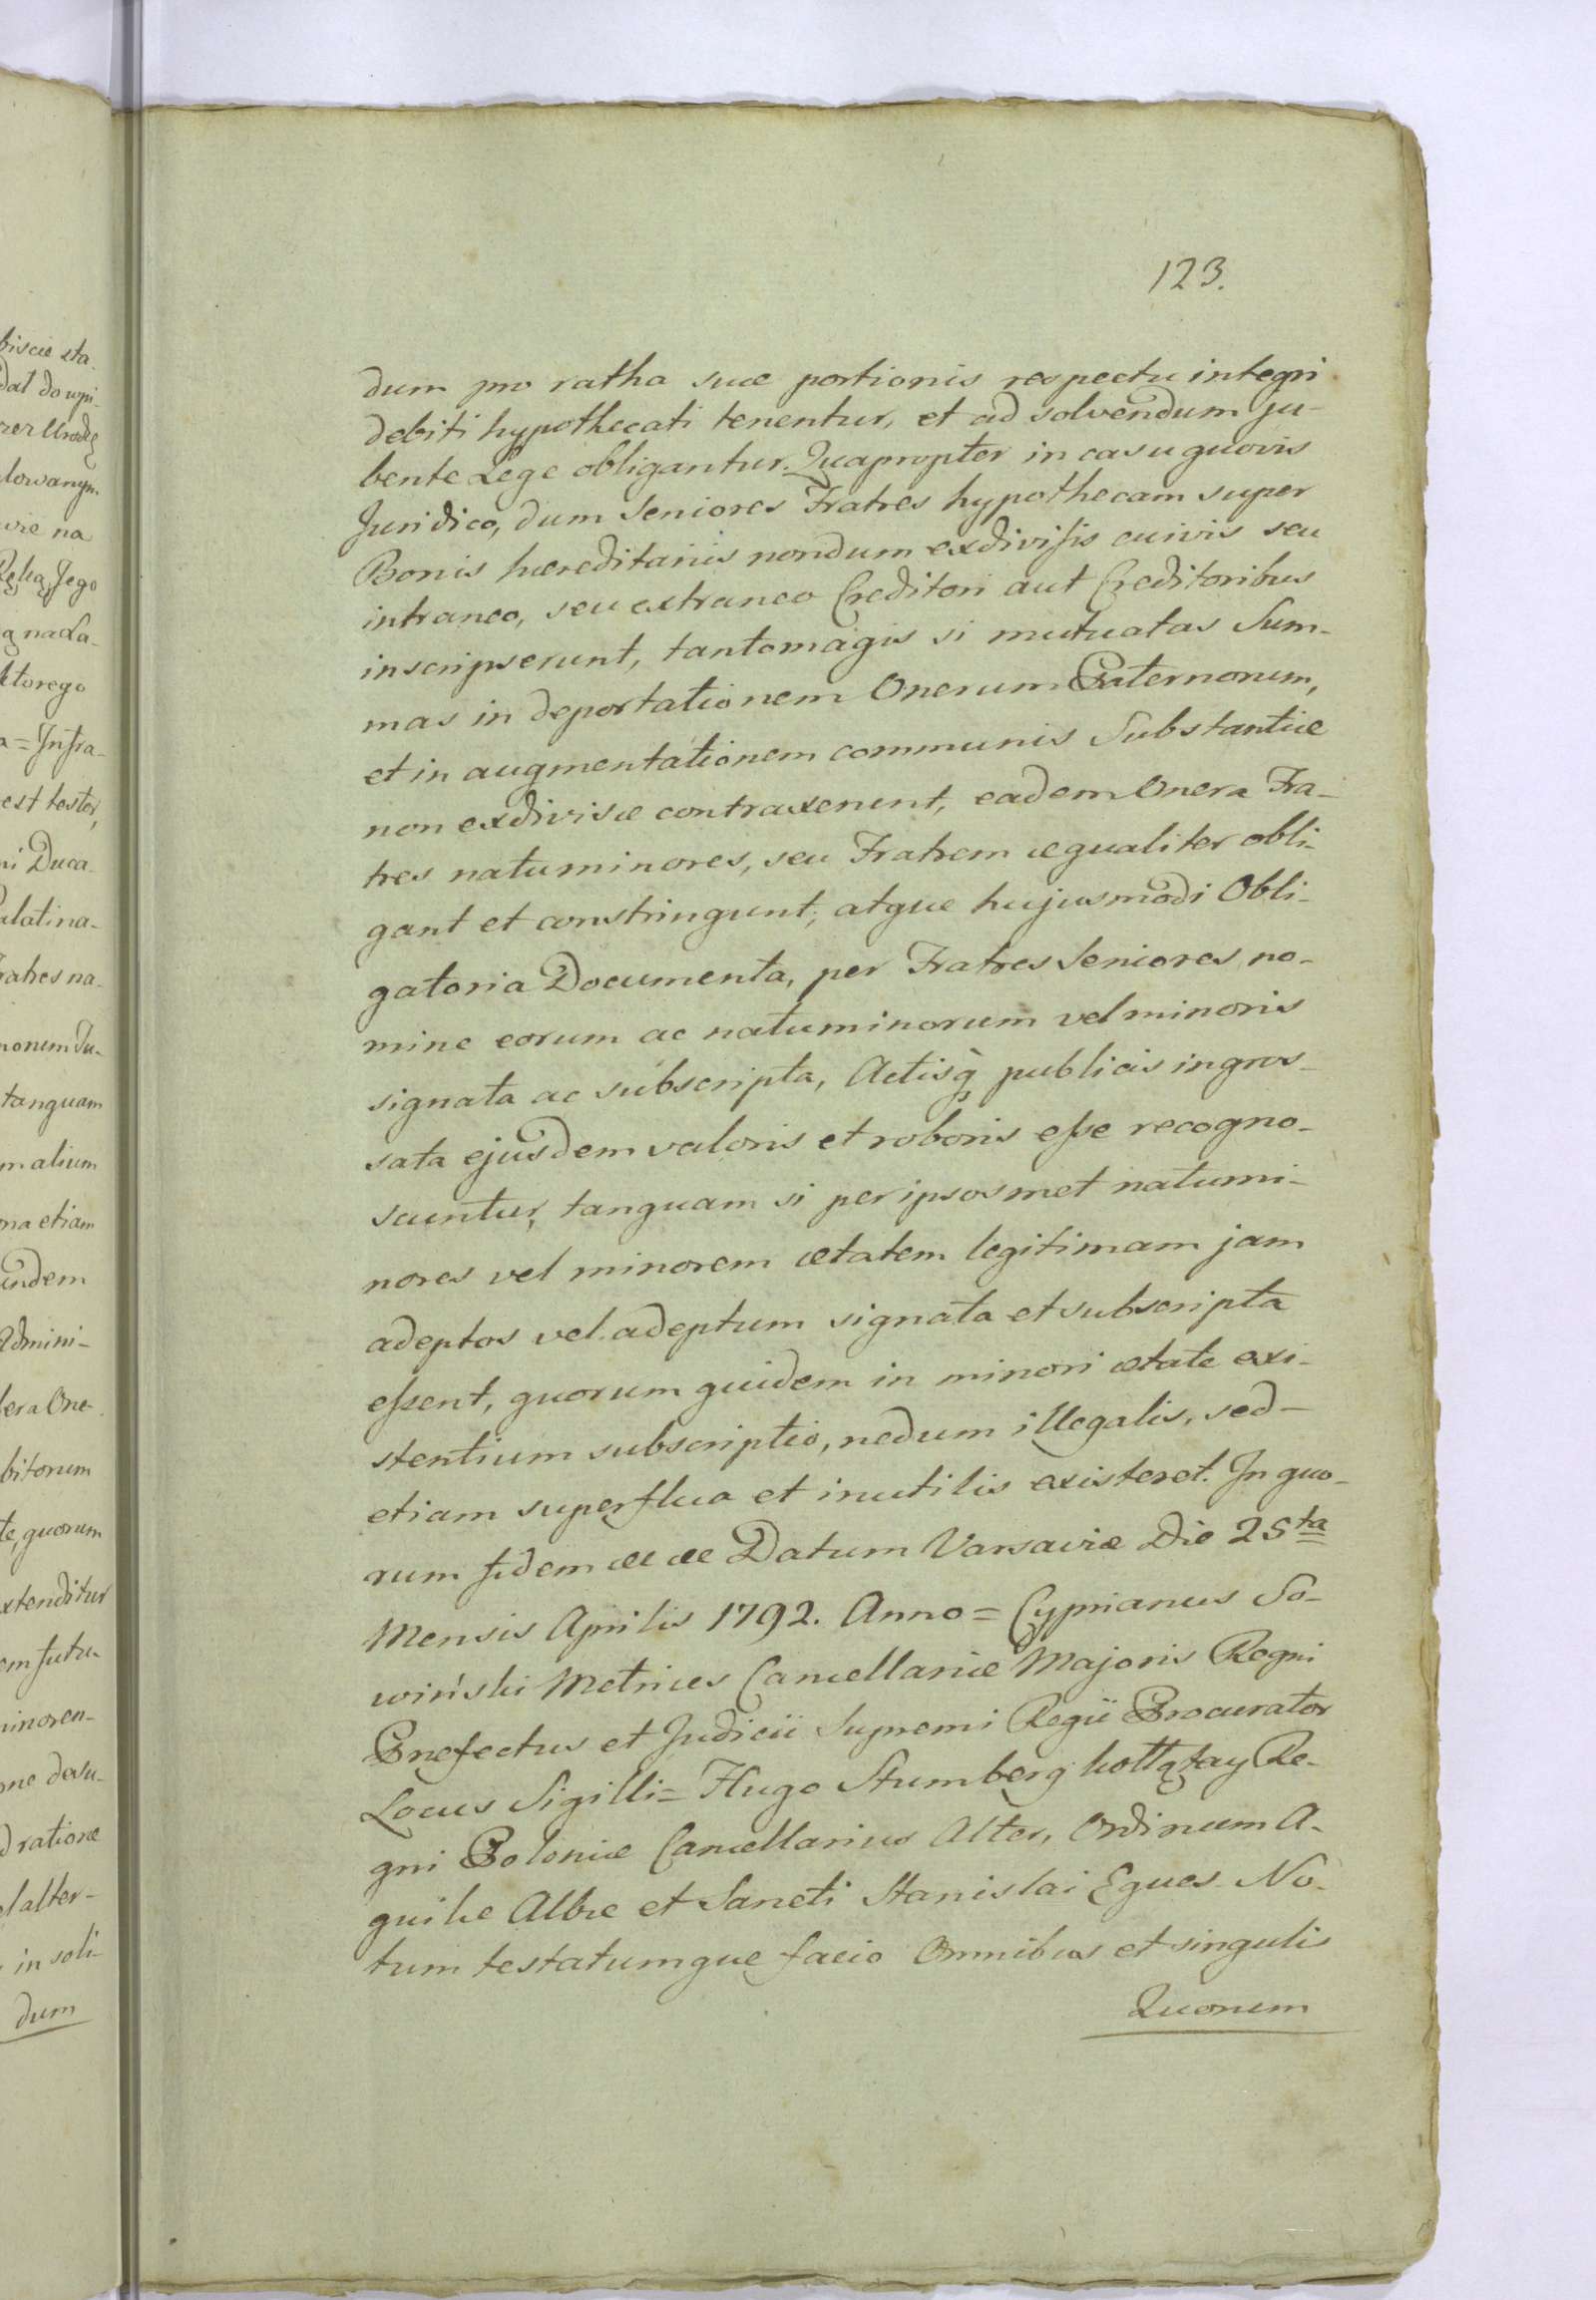 123.
dum pro ratha suæ portionis respectu integri
debiti hypothecati tenentur, et ad solvendum ju-
bente Lege obligantur. Quapropter in casu quovis
Juridico, dum Seniores Fratres hypothecam super
Bonis hæreditariis nondum exdivisis cuivis seu
intraneo, seu extraneo Creditori aut Creditoribus
inscripserunt, tantomagis si mutuatas Sum-
mas in deportationem Onerum Paternorum,
et in augmentationem communis Substantiæ
non exdivisæ contraxerunt, eadem Onera Fra-
tres natuminores, seu Fratrem æqualiter obli-
gant et constringunt; atque hujusmodi Obli-
gatoria Documenta, per Fratres Seniores no-
mine eorum ac natuminorum vel minoris
signata ac subscripta, Actisq̀ publicis ingros-
sata ejusdem valoris et roboris esse recogno-
scuntur, tanquam si per ipsosmet natumi-
nores vel minorem ætatem legitimam jam
adeptos vel adeptum signata et subscripta
essent, quorum quidem in minori ætate exi-
stentium subscriptio, nedum illegalis, sed-
etiam superflua et inutilis existeret. In quo-
rum fidem &c &c Datum Varsaviæ Die 25ta
Mensis Aprilis 1792. Anno = Cyprianus So-
wiński Metrices Cancellariæ Majoris Regni
Præfectus et Judicii Supremi Regii Procurator
Locus Sigilli = Hugo Stumberg kołłątay Re-
gni Poloniæ Cancellarius Alter, Ordinum A-
quilæ Albæ et Sancti Stanislai Eques No-
tum testatumque facio Omnibus et singulis
Quorum
biscie sta-
dat do wpi-
na
Jego
a na La-
ktorego
= Infra-
est testor,
ni Duca-
alatina-
ratres na-
tanquam
m alium
na etiam
Admini-
era One-
bitorum
te, quorum
xtenditur
em futu-
d ratione
el alter-
in soli-
dum